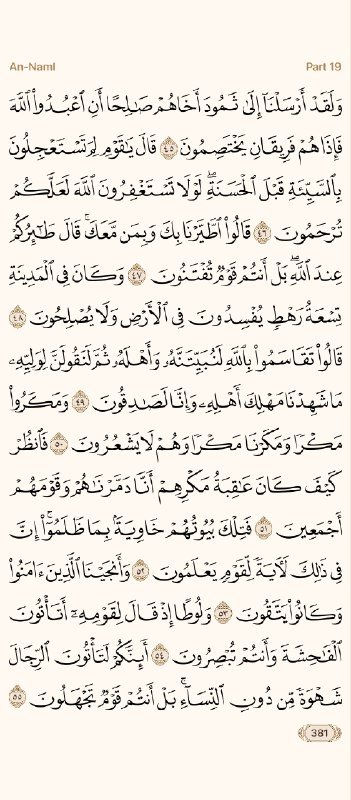 An-Naml Part 19
وَلَقَدۡ أَرۡسَلۡنَآ إِلَىٰ ثَمُودَ أَخَاهُمۡ صَٰلِحًا أَنِ ٱعۡبُدُواْ ٱللَّهَ
فَإِذَا هُمۡ فَرِيقَانِ يَخۡتَصِمُونَ ٤٥ قَالَ يَٰقَوۡمِ لِمَ تَسۡتَعۡجِلُونَ
بِٱلسَّيِّئَةِ قَبۡلَ ٱلۡحَسَنَةِۖ لَوۡلَا تَسۡتَغۡفِرُونَ ٱللَّهَ لَعَلَّكُمۡ
تُرۡحَمُونَ ٤٦ قَالُواْ ٱطَّيَّرۡنَا بِكَ وَبِمَن مَّعَكَۚ قَالَ طَٰٓئِرُكُمۡ
عِندَ ٱللَّهِۖ بَلۡ أَنتُمۡ قَوۡمٞ تُفۡتَنُونَ ٤٧ وَكَانَ فِي ٱلۡمَدِينَةِ
تِسۡعَةُ رَهۡطٖ يُفۡسِدُونَ فِي ٱلۡأَرۡضِ وَلَا يُصۡلِحُونَ ٤٨
قَالُواْ تَقَاسَمُواْ بِٱللَّهِ لَنُبَيِّتَنَّهُۥ وَأَهۡلَهُۥ ثُمَّ لَنَقُولَنَّ لِوَلِيِّهِۦ
مَا شَهِدۡنَا مَهۡلِكَ أَهۡلِهِۦ وَإِنَّا لَصَٰدِقُونَ ٤٩ وَمَكَرُواْ
مَكۡرٗا وَمَكَرۡنَا مَكۡرٗا وَهُمۡ لَا يَشۡعُرُونَ ٥٠ فَٱنظُرۡ
كَيۡفَ كَانَ عَٰقِبَةُ مَكۡرِهِمۡ أَنَّا دَمَّرۡنَٰهُمۡ وَقَوۡمَهُمۡ
أَجۡمَعِينَ ٥١ فَتِلۡكَ بُيُوتُهُمۡ خَاوِيَةَۢ بِمَا ظَلَمُوٓاْۚ إِنَّ
فِي ذَٰلِكَ لَأٓيَةٗ لِّقَوۡمٖ يَعۡلَمُونَ ٥٢ وَأَنجَيۡنَا ٱلَّذِينَ ءَامَنُواْ
وَكَانُواْ يَتَّقُونَ ٥٣ وَلُوطًا إِذۡ قَالَ لِقَوۡمِهِۦٓ أَتَأۡتُونَ
ٱلۡفَٰحِشَةَ وَأَنتُمۡ تُبۡصِرُونَ ٥٤ أَئِنَّكُمۡ لَتَأۡتُونَ ٱلرِّجَالَ
شَهۡوَةٗ مِّن دُونِ ٱلنِّسَآءِۚ بَلۡ أَنتُمۡ قَوۡمٞ تَجۡهَلُونَ ٥٥
381